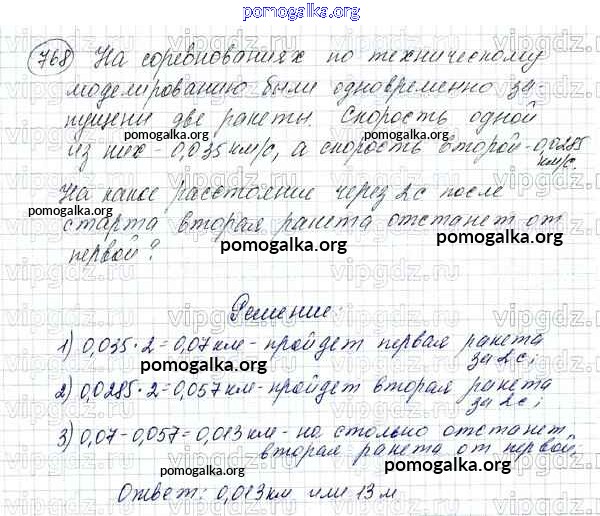 pomogalka.org
768 На соревнованиях по техническому
моделированию были одновременно за
пущены две ракеты. Скорость одной
pomogalka.org pomogalka.org
из них - 0,035 км/с, а скорость второй - 0,0285
км/с.
На какое расстояние через 2с после
pomogalka.org
старта вторая ракета отстанет от
pomogalka.org pomogalka.org
первой?
vipgdz.ru
Решение:
1) 0,035 · 2 = 0,07 км - пройдет первая ракета
за 2с;
pomogalka.org
2) 0,0285 · 2 = 0,057 км - пройдет вторая ракета
за 2с;
pomogalka.org
3) 0,07 - 0,057 = 0,013 км - на столько отстанет
вторая ракета от первой.
pomogalka.org pomogalka.org
Ответ: 0,013 км или 13 м